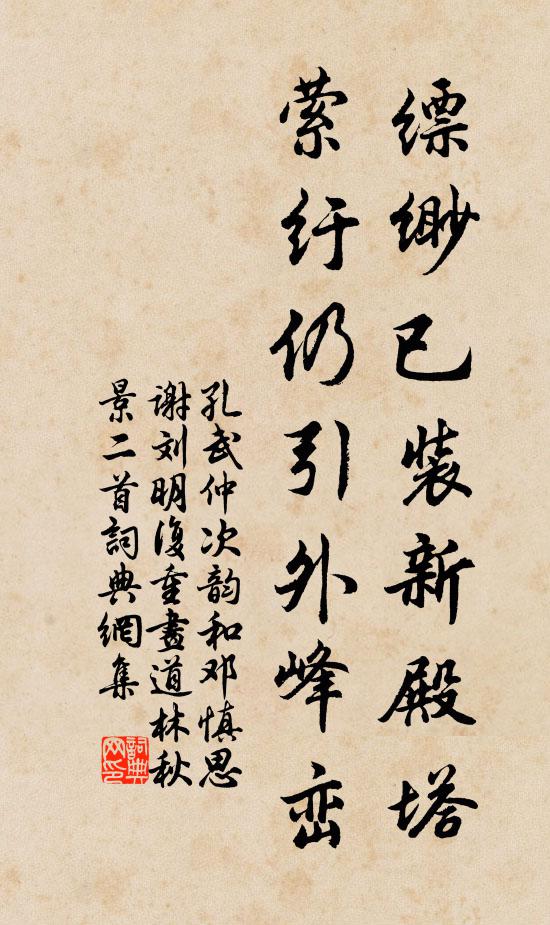 缥缈已装新殿塔
萦纡仍引外峰峦
孔武仲次韵和邓慎思
谢刘明復重畫道林秋
景二首詞典網集
詞典网印